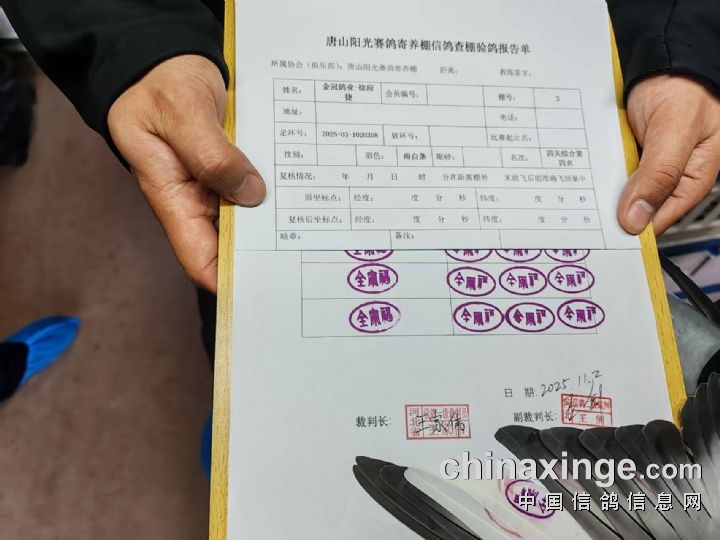 唐山阳光赛鸽寄养棚信鸽查棚验鸽报告单
所属协会（俱乐部）：唐山阳光赛鸽寄养棚 距离： 教练签字：
姓名： 金冠鸽业-徐应捷 会员编号： 棚号： 3
地址： 电话：
足环号： 2025-03-1020358 软环号： 比赛起止点：
性别： 羽色： 雨白条 眼砂： 名次： 四关综合第四名
复核情况： 年 月 日 时 分在距离棚外 米放飞后能准确飞回巢中
原坐标点： 经度： 度 分 秒 纬度： 度 分 秒
复核后坐标点： 经度： 度 分 秒 纬度： 度 分 秒
暗章： 备注：
全家福 全家福 全家福 全家福
全家福 全家福 全家福 全家福
日 期： 2025.11.2
裁判长： 副裁判长：
chinaxinge.com
中国信鸽信息网